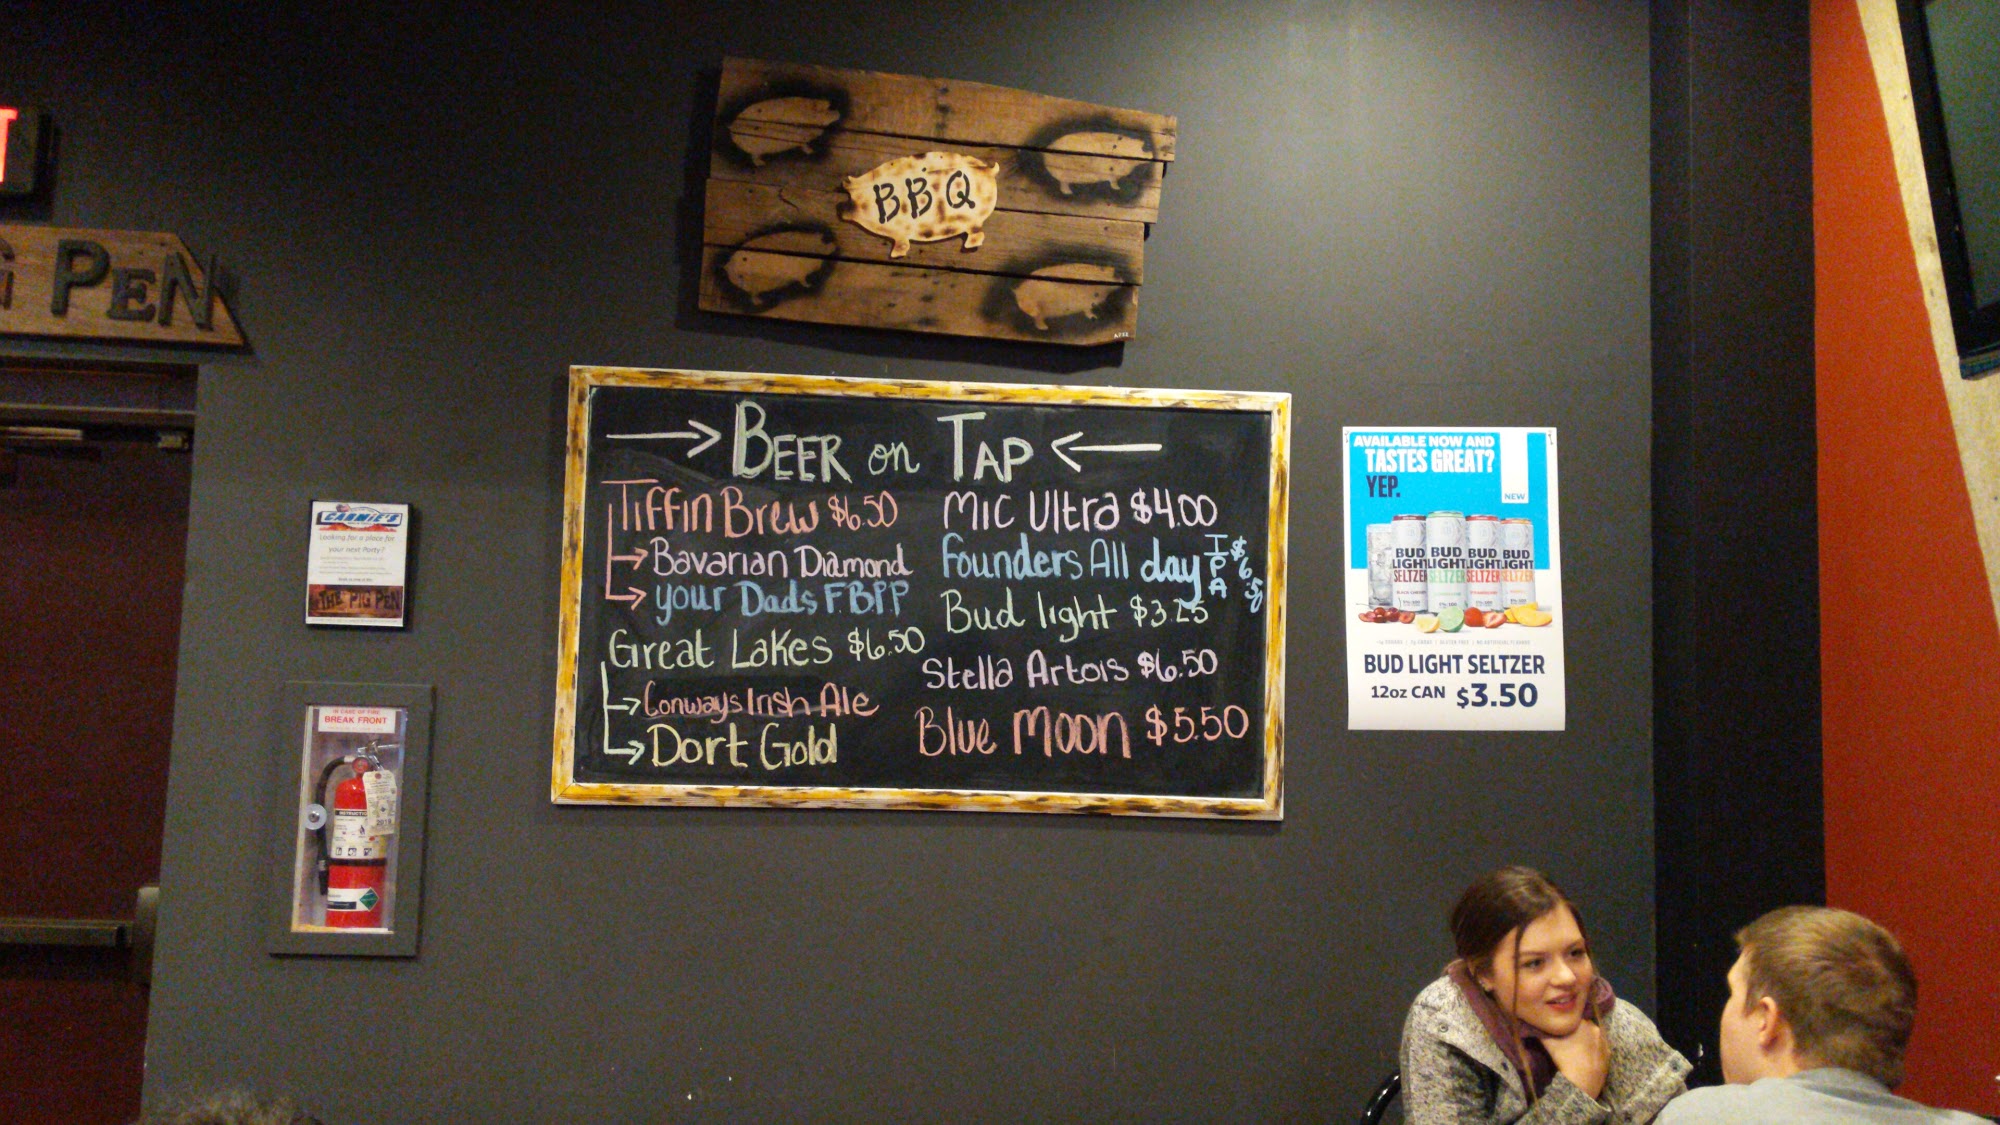 T
G PEN
BBQ
BEER on TAP
Tiffin Brew $6.50
Bavarian Diamond
your Dads FBPP
Great Lakes $6.50
Conways Irish Ale
Dort Gold
Mic Ultra $4.00
Founders All day IPA $6.50
Bud light $3.25
Stella Artois $6.50
Blue Moon $5.50
AVAILABLE NOW AND
TASTES GREAT?
YEP.
NEW
BUD LIGHT SELTZER
BUD LIGHT SELTZER
BUD LIGHT SELTZER
BUD LIGHT SELTZER
BUD LIGHT SELTZER
12oz CAN $3.50
CARMIE'S
Looking for a place for
your next Party?
THE PIG PEN
IN CASE OF FIRE
BREAK FRONT